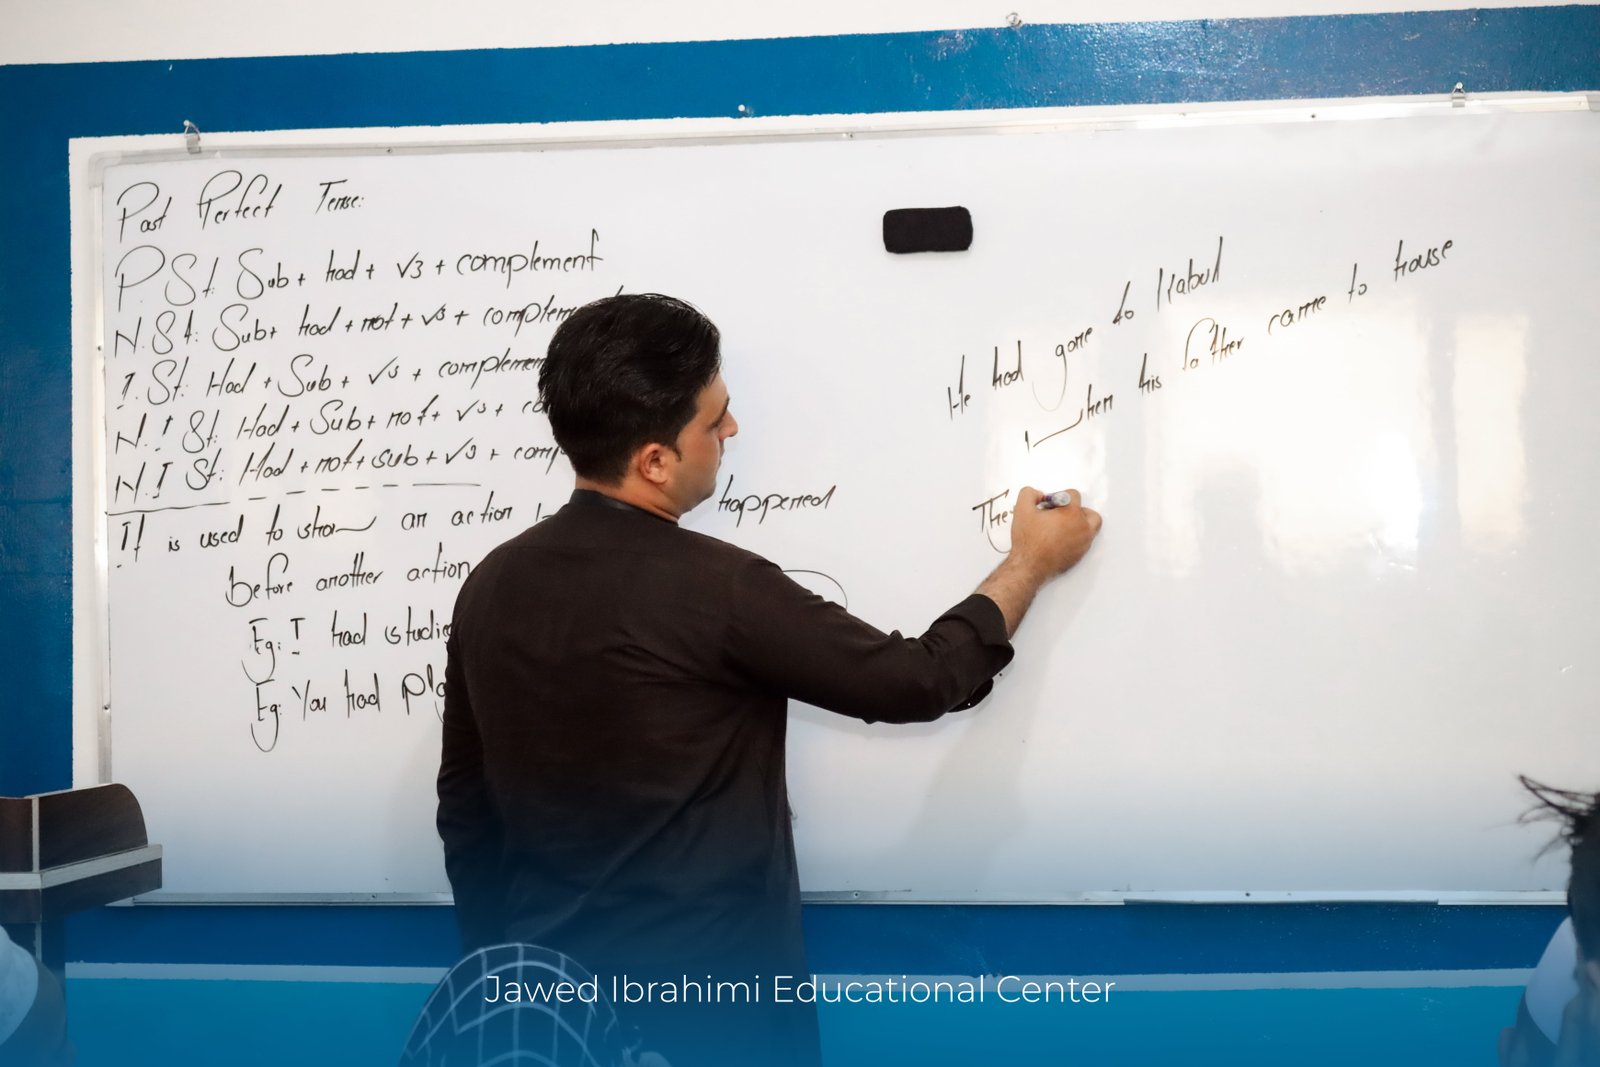 Past Perfect Tense:
P. St: Sub + had + V3 + complement
N. St: Sub + had + not + V3 + complem
I. St: Had + Sub + V3 + complemen
N. I St: Had + Sub + not + V3 + co
N. I St: Had + not + sub + V3 + comp
It is used to show an action happened
before another action
Eg: I had studie
Eg: You had pla
He had gone to Kabul
when his father came to house
They
Jawed Ibrahimi Educational Center